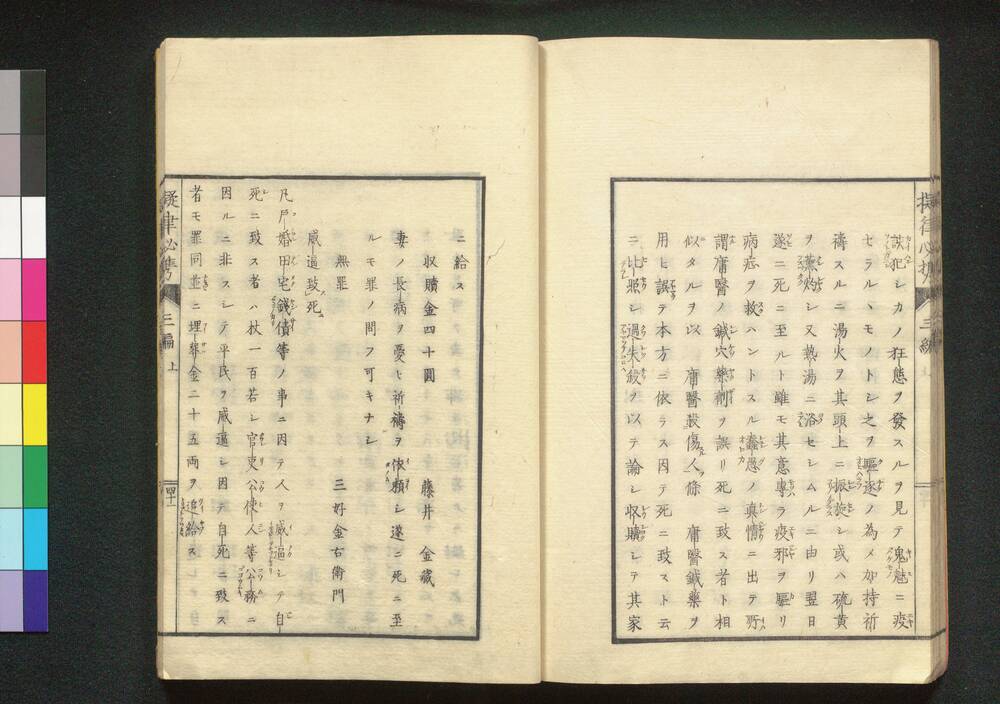 誤犯シカノ狂態ヲ發スルヲ見テ鬼魅ニ疫
セラルヽモノトシ之ヲ驅逐ノ為メ加持祈
禱スルニ湯火ヲ其頭上ニ振旋シ或ハ硫黄
ヲ薰灼シ又熱湯ニ浴セシムルニ由リ翌日
遂ニ死ニ至ルト雖モ其意專ラ疫邪ヲ驅リ
病痣ヲ救ハントスル蠢愚ノ眞情ニ出テ所
謂庸醫ノ鍼穴藥劑ヲ誤リ死ニ致ス者ト相
似タルヲ以 庸醫殺傷人條 庸醫鍼藥ヲ
用ヒ誤テ本方ニ依ラス因テ死ニ致スト云
ニ比照シ過失殺ヲ以テ論シ収贖シテ其家
ニ給ス
収贖金四十圓 藤井 金藏
妻ノ長病ヲ憂ヒ祈禱ヲ依賴シ遂ニ死ニ至
ルモ罪ノ問フ可キナシ
無罪 三好金右衛門
威逼致死
凡戶婚田宅錢債等ノ事ニ因テ人ヲ威逼シテ自
死ニ致ス者ハ杖一百若シ官吏公使人等公務ニ
因ルニ非スシテ平民ヲ威逼シ因テ自死ニ致ス
者モ罪同並ニ埋葬金二十五両ヲ追給ス
擬律必携 三編 上